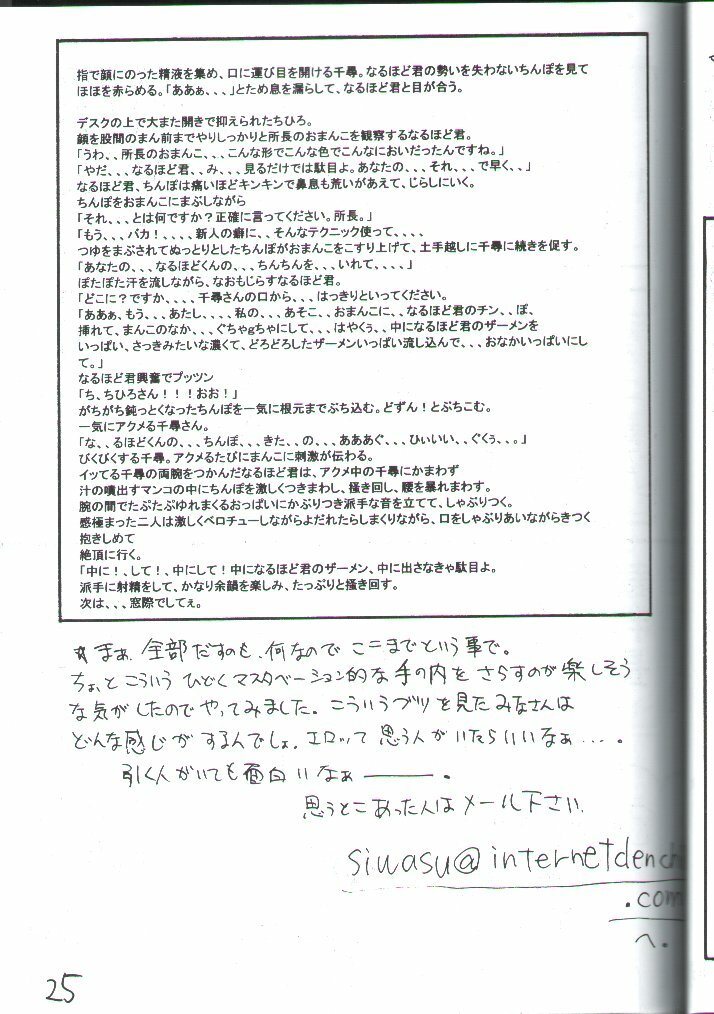 指で顔にのった精液を集め、口に運び目を開ける千尋。なるほど君の勢いを失わないちんぽを見て
ほほを赤らめる。「ああぁ、、、」とため息を漏らして、なるほど君と目が合う。
デスクの上で大また開きで抑えられたちひろ。
顔を股間のまん前までやりしっかりと所長のおまんこを観察するなるほど君。
「うわ、、所長のおまんこ、、、こんな形でこんな色でこんなにおいだったんですね。」
「やだ、、、なるほど君、、み、、、見るだけでは駄目よ。あなたの、、、それ、、、で早く、、」
なるほど君、ちんぽは痛いほどキンキンで鼻息も荒いがあえて、じらしにいく。
ちんぽをおまんこにまぶしながら
「それ、、、とは何ですか？正確に言ってください。所長。」
「もう、、、バカ！、、、、新人の癖に、、そんなテクニック使って、、、、
つゆをまぶされてぬっとりとしたちんぽがおまんこをこすり上げて、土手越しに千尋に続きを促す。
「あなたの、、、なるほどくんの、、、ちんちんを、、、いれて、、、、」
ぽたぽた汗を流しながら、なおもじらすなるほど君。
「どこに？ですか、、、、千尋さんの口から、、、はっきりといってください。
「ああぁ、もう、、、あたし、、、、私の、、、あそこ、、おまんこに、、なるほど君のチン、、ぽ、
挿れて、まんこのなか、、、、ぐちゃgちゃにして、、、、はやくぅ、、中になるほど君のザーメンを
いっぱい、さっきみたいな濃くて、どろどろしたザーメンいっぱい流し込んで、、、おなかいっぱいにし
て。」
なるほど君興奮でプッツン
「ち、ちひろさん！！！おお！」
がちがち鈍っとくなったちんぽを一気に根元までぶち込む。どずん！とぶちこむ。
一気にアクメる千尋さん。
「な、、るほどくんの、、、ちんぽ、、、きた、、の、、、あああぐ、、、ひぃいい、、ぐくぅ、、。」
びくびくする千尋。アクメるたびにまんこに刺激が伝わる。
イッてる千尋の両腕をつかんだなるほど君は、アクメ中の千尋にかまわず
汁の噴出すマンコの中にちんぽを激しくつきまわし、掻き回し、腰を暴れまわす。
腕の間でたぷたぷゆれまくるおっぱいにかぶりつき派手な音を立てて、しゃぶりつく。
感極まった二人は激しくベロチューしながらよだれたらしまくりながら、口をしゃぶりあいながらきつく
抱きしめて
絶頂に行く。
「中に！、して！、中にして！中になるほど君のザーメン、中に出さなきゃ駄目よ。
派手に射精をして、かなり余韻を楽しみ、たっぷりと掻き回す。
次は、、、窓際でしてぇ。
☆まぁ、全部だすのも、何なので ここまでという事で。
ちょっと こういう ひどく マスタベーション的な 手の内を さらすのが 楽しそう
な気がしたので やってみました。こういうブツを見たみなさんは
どんな感じが するんでしょ。エロッて 思う人がいたらいいなぁ….。
引く人がいても面白いなぁ――。
思うとこあった人はメール下さい.
siwasu@internetdenchi
.com
へ。
25